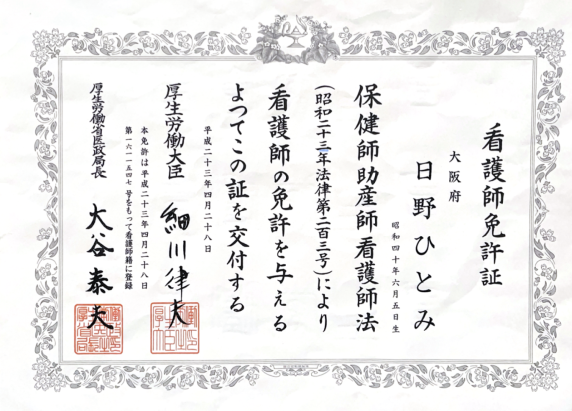 看護師免許証
大阪府
日野ひとみ
昭和四十年六月五日生
保健師助産師看護師法
(昭和二十三年法律第二百三号)により
看護師の免許を与える
よつてこの証を交付する
平成二十三年四月二十八日
厚生労働大臣 細川律夫
本免許は平成二十三年四月二十八日
第一六一一五四七号をもって看護師籍に登録
厚生労働省医政局長 大谷泰夫